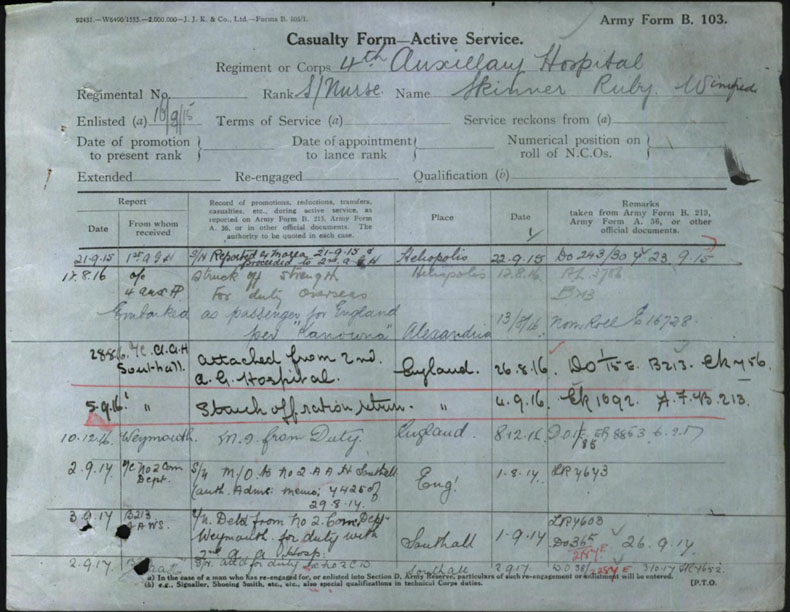 92451.—W6496/1555.—2,000,000.—J. J. K. & Co., Ltd.—Forms B. 103/1.
Army Form B. 103.
Casualty Form—Active Service.
Regiment or Corps 4th Auxillary Hospital
Regimental No. Rank S/Nurse Name Skinner Ruby Winifred
Enlisted (a) 16/9/15 Terms of Service (a) Service reckons from (a)
Date of promotion to present rank Date of appointment to lance rank Numerical position on roll of N.C.Os.
Extended Re-engaged Qualification (b)
Report
Date From whom received
Record of promotions, reductions, transfers, casualties, etc., during active service, as reported on Army Form B. 213, Army Form A. 36, or in other official documents. The authority to be quoted in each case.
Place
Date
Remarks taken from Army Form B. 213, Army Form A. 36, or other official documents.
21-9-15 1st A G H S/N Reported 21-9-15 &
proceeded to 2nd A G H Heliopolis 22.9.15 DO 243/30 23.9.15
17.8.16 o/c Struck off strength Heliopolis 12.8.16
4 Aux H For duty overseas B213
Embarked as passenger for England
per "Kanowna" Alexandria 13/8/16 Nom Roll E16728.
28.8.16 A.A.H Southall. attached from 2nd. A.G. Hospital. England. 26.8.16 B213. Ek 756.
5.9.16 " Struck off ration return. " 4.9.16 Ek 1092. A.F.B. 213.
10.12.16 Weymouth. M.I. from Duty. England 8.12.16
2.9.17 No 2 Com Dept. S/N M/O to No 2 A A H Southall
(auth. Adms. memo; 7425 of 29.8.17. Eng! 1-8-17 LR 4643
3.9.17 B213 S/N. Detd from No 2. Com. Dept
Weymouth for duty with Southall 1-9-17 26.9.17
2nd A. A. Hosp.
2.9.17 Southall 2.9.17
(a) In the case of a man who has re-engaged for, or enlisted into Section D, Army Reserve, particulars of such re-engagement or enlistment will be entered.
(b) e.g., Signaller, Shoeing Smith, etc., etc., also special qualifications in technical Corps duties. [P.T.O.